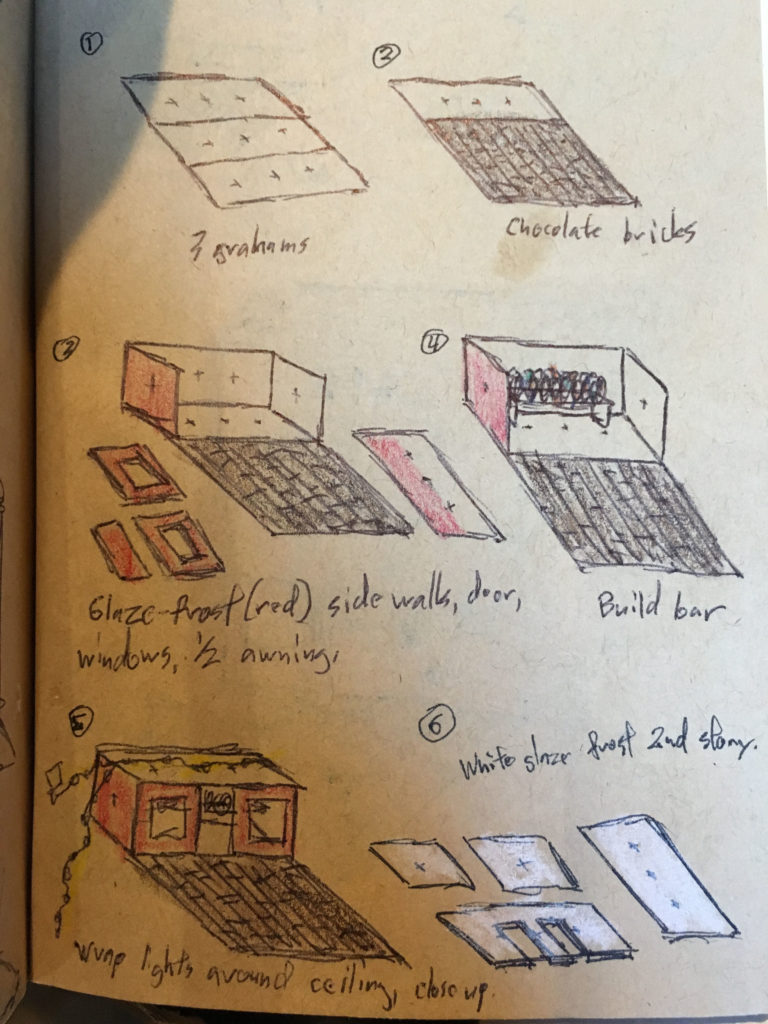 1
2
3 grahams
Chocolate bricks
3
4
Glaze-frost (red) side walls, door,
windows, 1/2 awning.
Build bar
5
6
White glaze frost 2nd story.
Wrap lights around ceiling, close up.